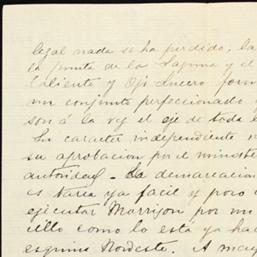 legal nada se ha perdido; La
la punta de la Laguna y el
Caliente y Ojo
un conjunto perfeccionado
son á la vez el eje de toda
Su caracter independiente
su aprobacion por el minist
autoridad - La demarcacion
es tarea ya facil y poco
ejecutar Morrison por mi
ello como lo esta ya ha
esquina Nordeste. A may